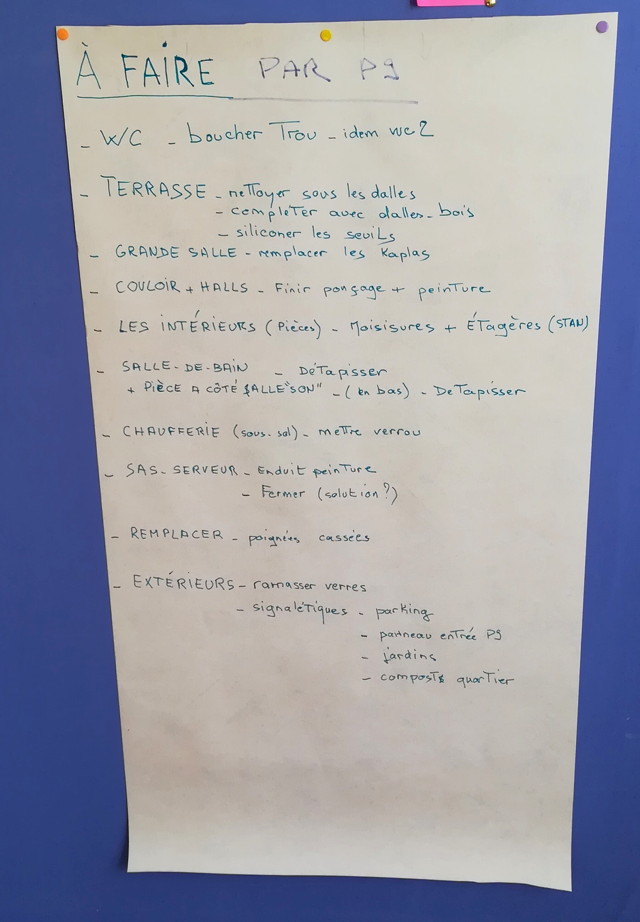 À FAIRE PAR P9
- WC - boucher Trou - idem wc2
- TERRASSE - nettoyer sous les dalles
- compléter avec dalles-bois
- siliconer les seuils
- GRANDE SALLE - remplacer les Kaplas
- COULOIR + HALLS - Finir ponçage + peinture
- LES INTÉRIEURS (Pièces) - Moisisures + ÉTagères (STAN)
- SALLE-DE-BAIN - DéTapisser
+ PIÈCE A CÔTÉ SALLE "SON" - (en bas) - DeTapisser
- CHAUFFERIE (sous-sol) - mettre verrou
- SAS-SERVEUR - Enduit peinture
- Fermer (solution?)
- REMPLACER - poignées cassées
- EXTÉRIEURS - ramasser verres
- signalétiques - parking
- panneau entrée P9
- jardins
- composts quartier